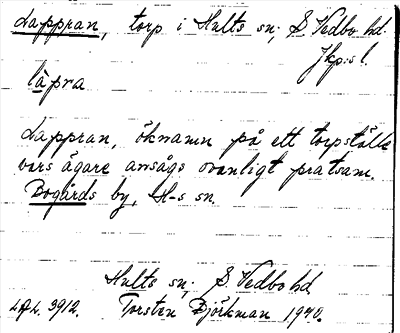 Lappran, torp i Hults sn; S. Vedbo hd.
Jkp:s l.
làpra
Lappran, öknamn på ett torpställe
vars ägare ansågs ovanligt pratsam.
Bogårds by, H-s sn.
Hults sn; S. Vedbo hd
Torsten Björkman 1940.
3912.